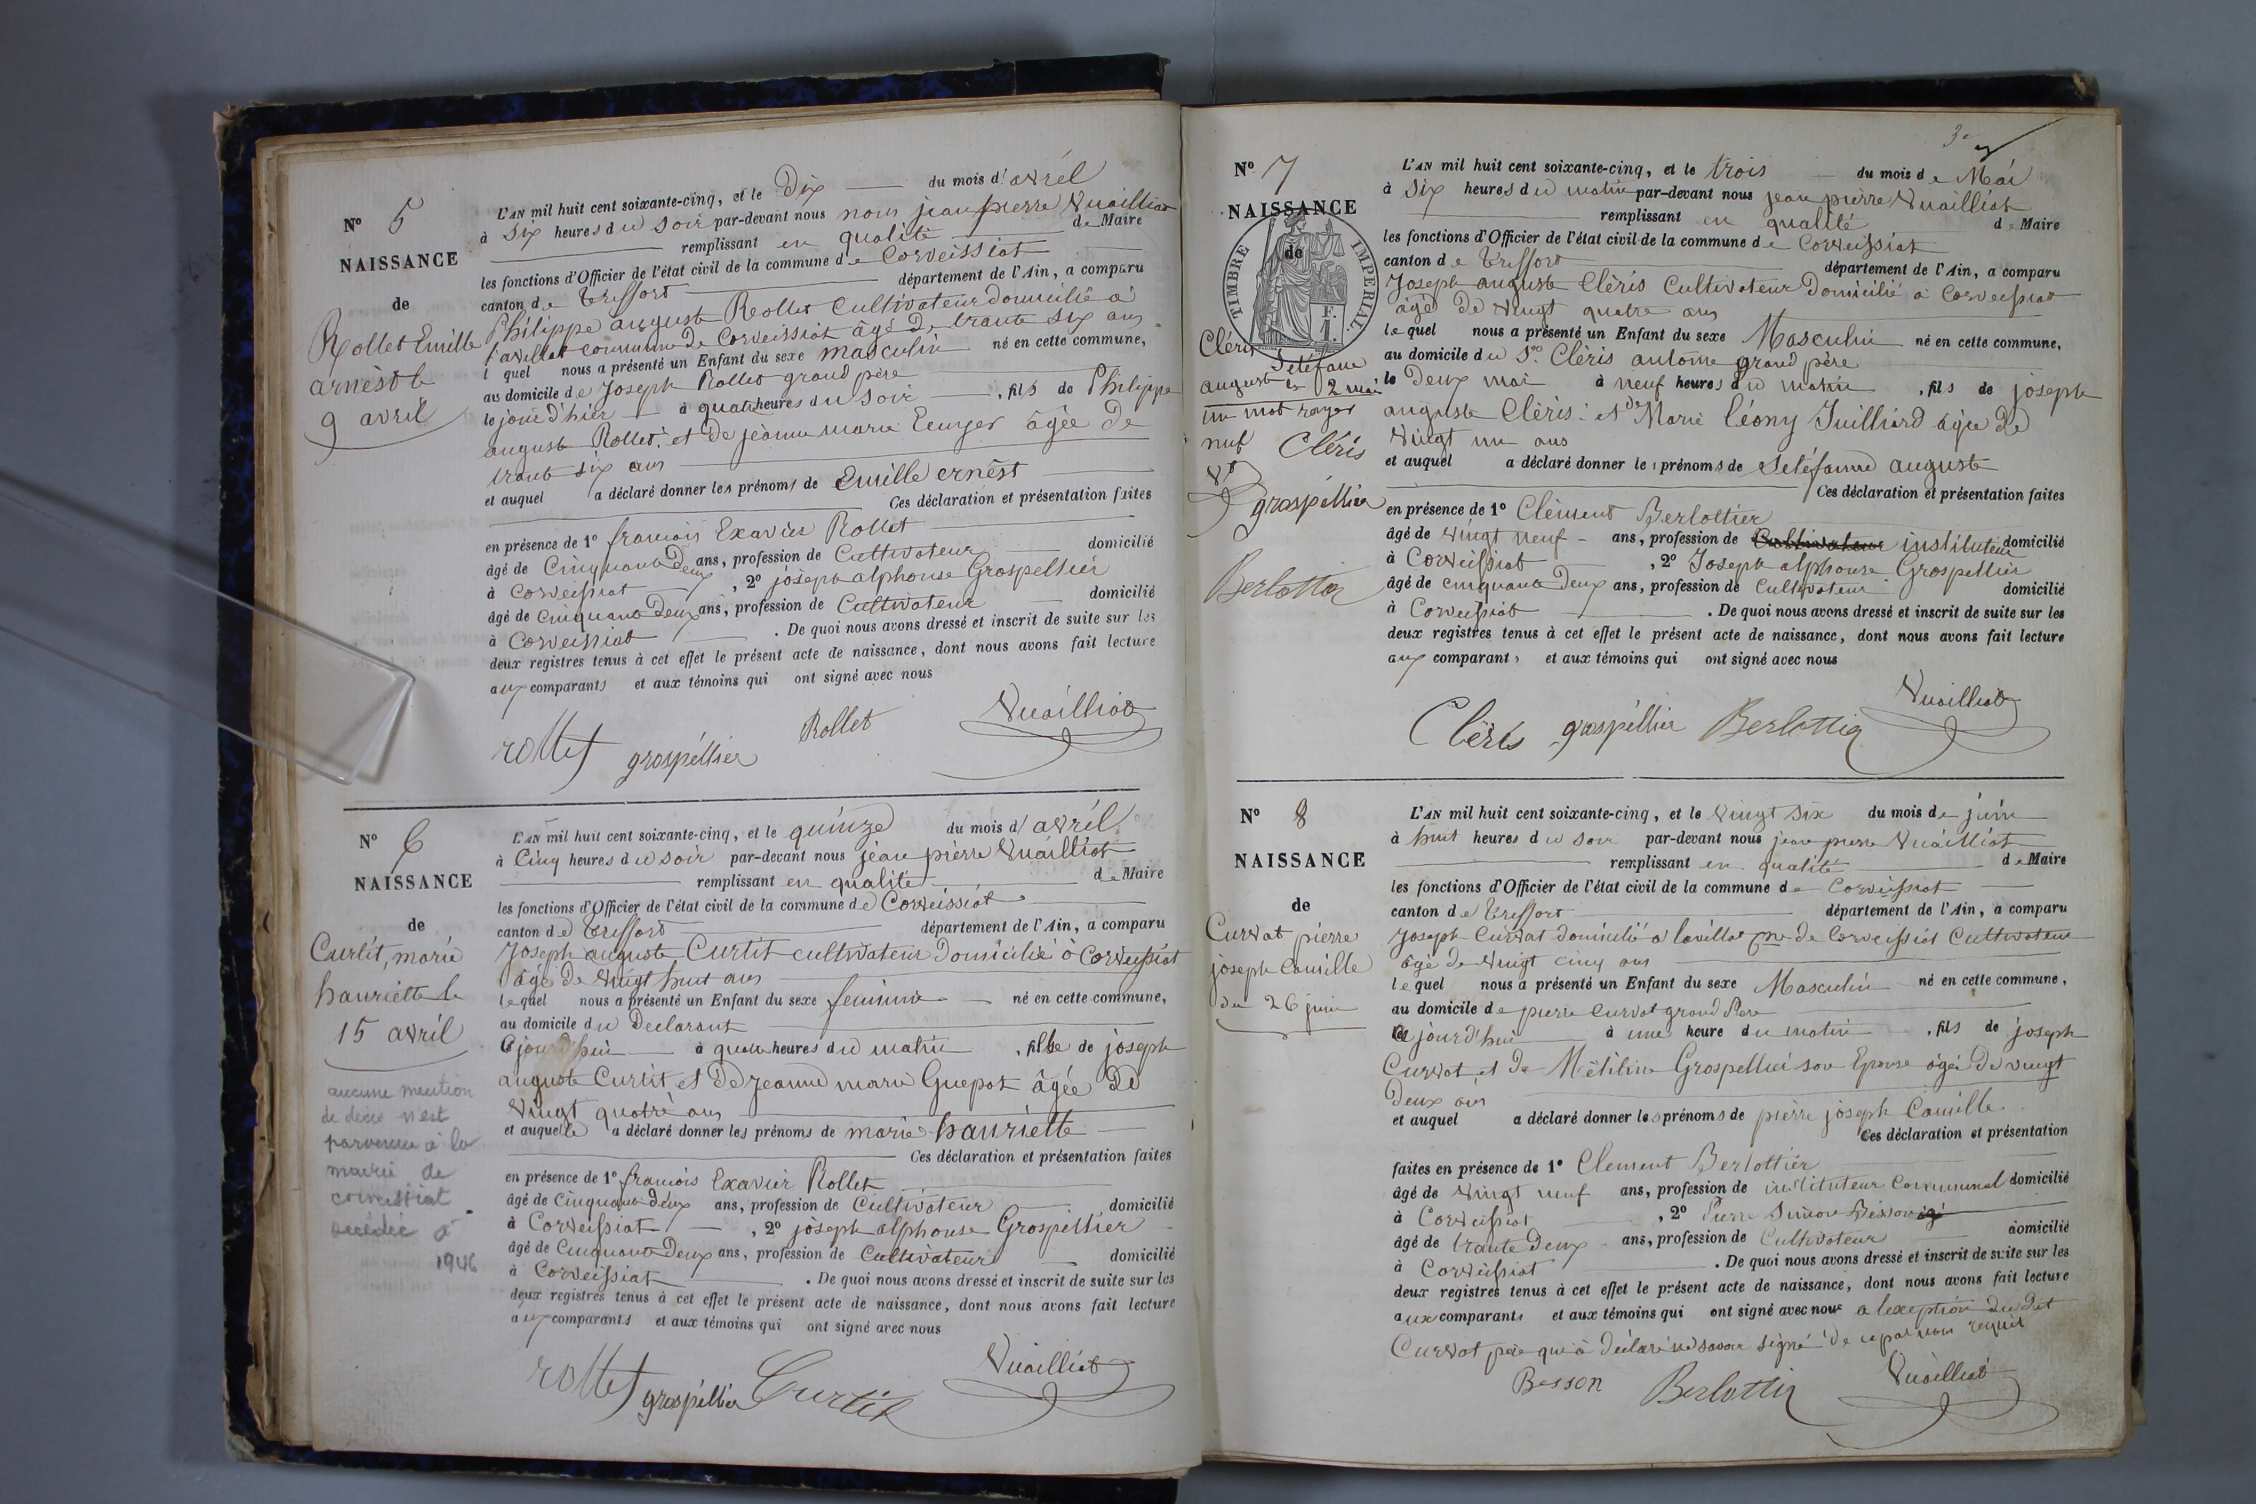 N° 5
NAISSANCE
de
Rollet Emille
arnèst le
9 avril
L'AN mil huit cent soixante-cinq, et le Dix du mois d' avrél
à Six heures du soir par-devant nous nous jean pierre Vuailliat
remplissant en qualité de Maire
les fonctions d'Officier de l'état civil de la commune de Corveissiat
canton de Treffort département de l'Ain, a comparu
Philippe auguste Rollet Cultivateur domicilié à
Lavillat commune de Corveissiat âgé de trante six ans
l quel nous a présenté un Enfant du sexe masculin né en cette commune,
au domicile de Joseph Rollet grand père
le jour d'hier à quatre heures du soir , fils de Philippe
auguste Rollet et de jeanne marie Eenger âgée de
trante six ans
et auquel a déclaré donner les prénoms de Emille ernést
Ces déclaration et présentation faites
en présence de 1° francois Exavier Rollet
âgé de Cinquante Deux ans, profession de Cultivateur domicilié
à Corveissiat , 2° joseph alphonse Grospellier
âgé de Cinquante Deux ans, profession de Cultivateur domicilié
à Corveissiat . De quoi nous avons dressé et inscrit de suite sur les
deux registres tenus à cet effet le présent acte de naissance, dont nous avons fait lecture
aux comparants et aux témoins qui ont signé avec nous
rollet grospéllier Rollet Vuailliat
N° 6
NAISSANCE
de
Curtit, marie
hauriette le
15 avril
aucune mention
de décès n'est
parvenue à la
mairie de
corveissiat
décédée à
1946
L'AN mil huit cent soixante-cinq, et le quinze du mois d' avrél
à Cinq heures du soir par-devant nous jean pierre Vuailliat
remplissant en qualité de Maire
les fonctions d'Officier de l'état civil de la commune de Corveissiat
canton de Treffort département de l'Ain, a comparu
Joseph auguste Curtit cultivateur Domicilié à Corveissiat
âgé de vingt huit ans
lequel nous a présenté un Enfant du sexe feminin né en cette commune,
au domicile du Declarant
ajourd'huin à quatre heures du matin , fille de joseph
auguste Curtit et de Jeanne marie Guepot âgée de
Vingt quatre ans
et auquelle a déclaré donner les prénoms de marie hauriette
Ces déclaration et présentation faites
en présence de 1° francois Exavier Rollet
âgé de cinquante deux ans, profession de Cultivateur domicilié
à Corveissiat , 2° joseph alphonse Grospellier
âgé de Cinquante Deux ans, profession de Cultivateur domicilié
à Corveissiat . De quoi nous avons dressé et inscrit de suite sur les
deux registres tenus à cet effet le présent acte de naissance, dont nous avons fait lecture
aux comparants et aux témoins qui ont signé avec nous
rollet grospéllier Curtit Vuailliat
N° 7
NAISSANCE
de
TIMBRE IMPERIAL.
Cléris
Setéfane
auguste le 2 mai
un mot rayer
nul Cléris
grospéllier
Berlottier
L'AN mil huit cent soixante-cinq, et le trois du mois de Mai
à Six heures du matin par-devant nous jean pierre Vuailliat
remplissant en qualité de Maire
les fonctions d'Officier de l'état civil de la commune de Corveissiat
canton de Treffort département de l'Ain, a comparu
Joseph auguste Cléris Cultivateur Domicilié à Corveissiat
âgé de vingt quatre ans
lequel nous a présenté un Enfant du sexe Masculin né en cette commune,
au domicile du Sr Cléris antoine grand père
le Deux mai à neuf heures du matin , fils de joseph
auguste Cléris et de Marie Léony Juilliard âgée de
Vingt un ans
et auquel a déclaré donner les prénoms de Setéfanne auguste
Ces déclaration et présentation faites
en présence de 1° Clément Berlottier
âgé de vingt neuf ans, profession de Cultivateur instituteur domicilié
à Corveissiat , 2° Joseph alphonse Grospellier
âgé de cinquante Deux ans, profession de Cultivateur domicilié
à Corveissiat . De quoi nous avons dressé et inscrit de suite sur les
deux registres tenus à cet effet le présent acte de naissance, dont nous avons fait lecture
aux comparants et aux témoins qui ont signé avec nous
Cléris grospéllier Berlottier Vuailliat
N° 8
NAISSANCE
de
Curvat pierre
joseph Camille
du 26 juin
L'AN mil huit cent soixante-cinq, et le vingt six du mois de juin
à huit heures du soir par-devant nous jean pierre Vuailliat
remplissant en qualité de Maire
les fonctions d'Officier de l'état civil de la commune de Corveissiat
canton de Treffort département de l'Ain, a comparu
Joseph Curvat domicilié a lavillat Cne de Corveissiat Cultivateur
âgé de vingt cinq ans
lequel nous a présenté un Enfant du sexe Masculin né en cette commune,
au domicile de pierre Curvat grand Père
ajourd'hui à une heure du matin , fils de joseph
Curvat et de Mélilina Grospellier son Epouse âgée de vingt
deux ans
et auquel a déclaré donner les prénoms de pierre joseph Camille
Ces déclaration et présentation
faites en présence de 1° Clement Berlottier
âgé de vingt neuf ans, profession de instituteur Communal domicilié
à Corveissiat , 2° Pierre Simon Besson
âgé de trante Deux ans, profession de Cultivateur domicilié
à Corveissiat . De quoi nous avons dressé et inscrit de suite sur les
deux registres tenus à cet effet le présent acte de naissance, dont nous avons fait lecture
aux comparants et aux témoins qui ont signé avec nous a lexception du dit
Curvat père qui à déclaré ne savoir signé de ce par nous requis
Besson Berlottier Vuailliat